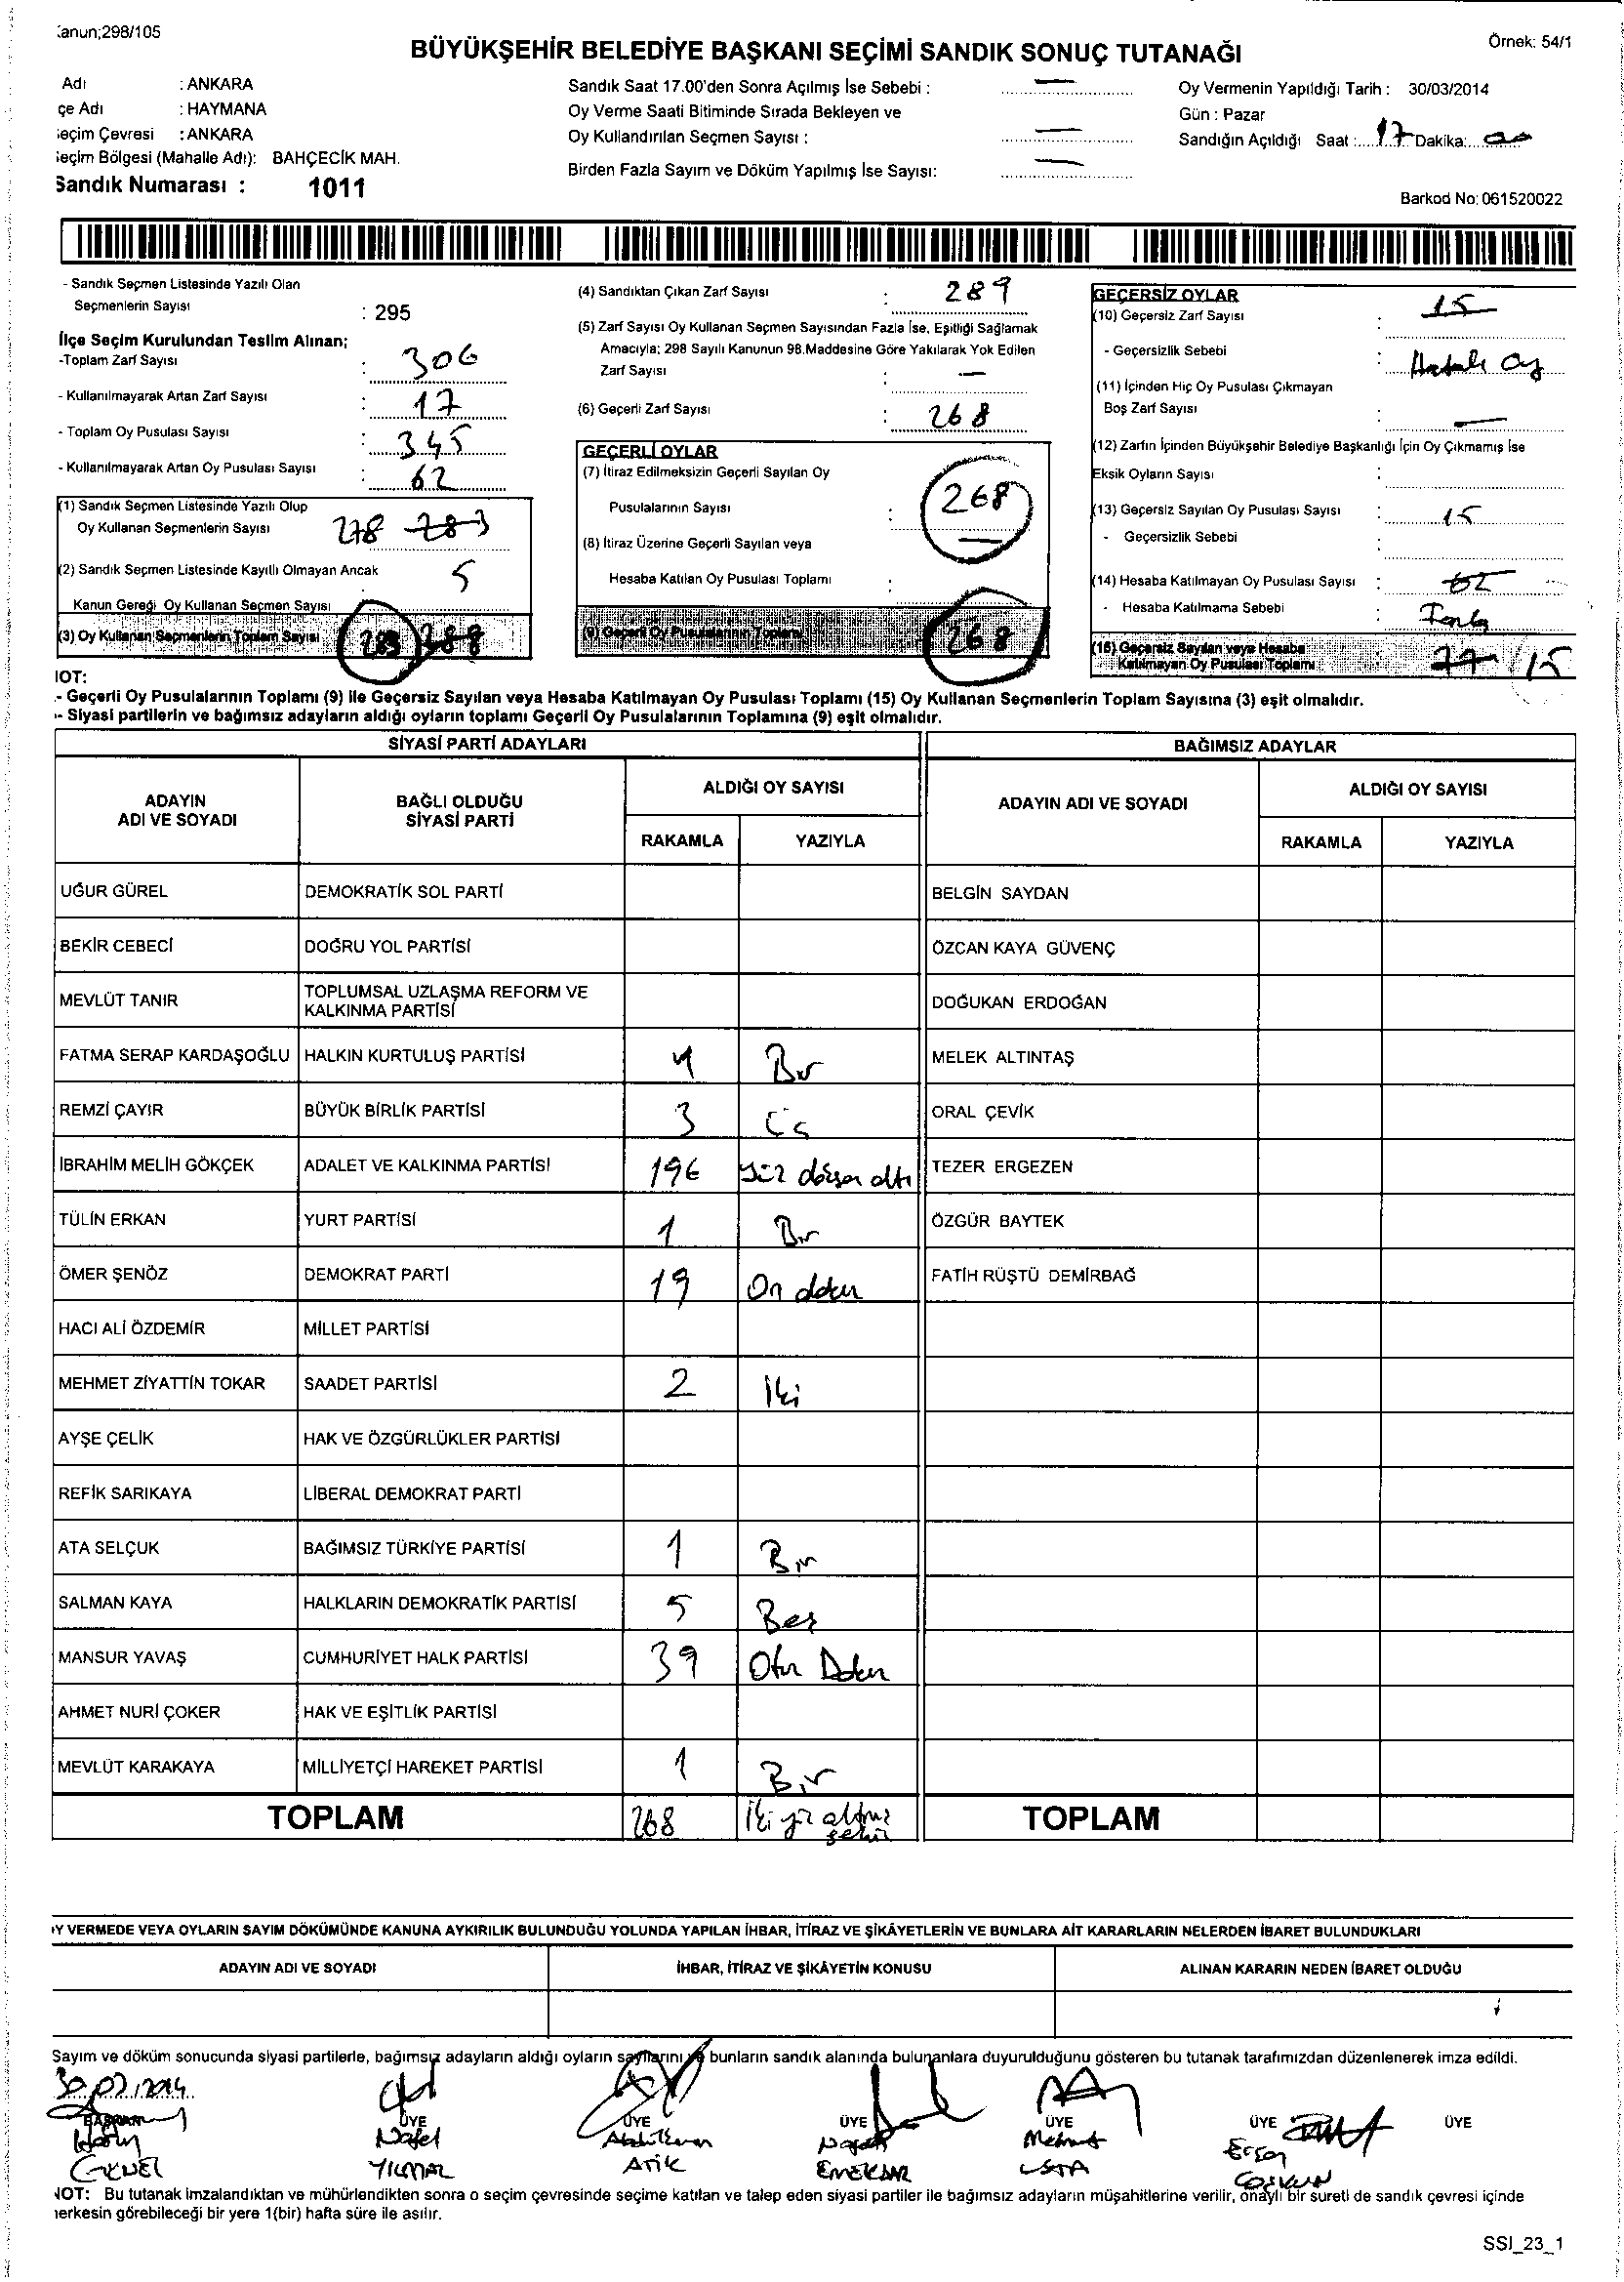 Kanun;298/105
Örnek: 54/1
BÜYÜKŞEHİR BELEDİYE BAŞKANI SEÇİMİ SANDIK SONUÇ TUTANAĞI
Adı : ANKARA
çe Adı : HAYMANA
eçim Çevresi : ANKARA
eçim Bölgesi (Mahalle Adı): BAHÇECİK MAH.
Sandık Numarası : 1011
Sandık Saat 17.00'den Sonra Açılmış İse Sebebi : —
Oy Verme Saati Bitiminde Sırada Bekleyen ve
Oy Kullandırılan Seçmen Sayısı : —
Birden Fazla Sayım ve Döküm Yapılmış İse Sayısı: —
Oy Vermenin Yapıldığı Tarih : 30/03/2014
Gün : Pazar
Sandığın Açıldığı Saat : 17 Dakika: 00
Barkod No: 061520022
- Sandık Seçmen Listesinde Yazılı Olan
Seçmenlerin Sayısı : 295
İlçe Seçim Kurulundan Teslim Alınan;
-Toplam Zarf Sayısı : 306
- Kullanılmayarak Artan Zarf Sayısı : 17
- Toplam Oy Pusulası Sayısı : 345
- Kullanılmayarak Artan Oy Pusulası Sayısı : 62
(1) Sandık Seçmen Listesinde Yazılı Olup
Oy Kullanan Seçmenlerin Sayısı 278 283
(2) Sandık Seçmen Listesinde Kayıtlı Olmayan Ancak
Kanun Gereği Oy Kullanan Seçmen Sayısı : 5
(3) Oy Kullanan Seçmenlerin Toplam Sayısı 283 288
(4) Sandıktan Çıkan Zarf Sayısı : 289
(5) Zarf Sayısı Oy Kullanan Seçmen Sayısından Fazla İse, Eşitliği Sağlamak
Amacıyla; 298 Sayılı Kanunun 98.Maddesine Göre Yakılarak Yok Edilen
Zarf Sayısı : —
(6) Geçerli Zarf Sayısı : 268
GEÇERLİ OYLAR
(7) İtiraz Edilmeksizin Geçerli Sayılan Oy
Pusulalarının Sayısı : 268
(8) İtiraz Üzerine Geçerli Sayılan veya
Hesaba Katılan Oy Pusulası Toplamı : —
(9) Geçerli Oy Pusulalarının Toplamı 268
GEÇERSİZ OYLAR
(10) Geçersiz Zarf Sayısı : 15
- Geçersizlik Sebebi : Hatalı oy
(11) İçinden Hiç Oy Pusulası Çıkmayan
Boş Zarf Sayısı : —
(12) Zarfın İçinden Büyükşehir Belediye Başkanlığı İçin Oy Çıkmamış İse
Eksik Oyların Sayısı :
(13) Geçersiz Sayılan Oy Pusulası Sayısı : 15
- Geçersizlik Sebebi :
(14) Hesaba Katılmayan Oy Pusulası Sayısı : 62
- Hesaba Katılmama Sebebi : Fazla
(15) Geçersiz Sayılan veya Hesaba
Katılmayan Oy Pusulası Toplamı : 77 15
NOT:
- Geçerli Oy Pusulalarının Toplamı (9) ile Geçersiz Sayılan veya Hesaba Katılmayan Oy Pusulası Toplamı (15) Oy Kullanan Seçmenlerin Toplam Sayısına (3) eşit olmalıdır.
- Siyasi partilerin ve bağımsız adayların aldığı oyların toplamı Geçerli Oy Pusulalarının Toplamına (9) eşit olmalıdır.
SİYASİ PARTİ ADAYLARI BAĞIMSIZ ADAYLAR
ADAYIN ADI VE SOYADI BAĞLI OLDUĞU SİYASİ PARTİ ALDIĞI OY SAYISI ADAYIN ADI VE SOYADI ALDIĞI OY SAYISI
RAKAMLA YAZIYLA RAKAMLA YAZIYLA
UĞUR GÜREL DEMOKRATİK SOL PARTİ BELGİN SAYDAN
BEKİR CEBECİ DOĞRU YOL PARTİSİ ÖZCAN KAYA GÜVENÇ
MEVLÜT TANIR TOPLUMSAL UZLAŞMA REFORM VE KALKINMA PARTİSİ DOĞUKAN ERDOĞAN
FATMA SERAP KARDAŞOĞLU HALKIN KURTULUŞ PARTİSİ 1 Bir MELEK ALTINTAŞ
REMZİ ÇAYIR BÜYÜK BİRLİK PARTİSİ 3 Üç ORAL ÇEVİK
İBRAHİM MELİH GÖKÇEK ADALET VE KALKINMA PARTİSİ 196 Yüz doksan altı TEZER ERGEZEN
TÜLİN ERKAN YURT PARTİSİ 1 Bir ÖZGÜR BAYTEK
ÖMER ŞENÖZ DEMOKRAT PARTİ 19 On dokuz FATİH RÜŞTÜ DEMİRBAĞ
HACI ALİ ÖZDEMİR MİLLET PARTİSİ
MEHMET ZİYATTİN TOKAR SAADET PARTİSİ 2 İki
AYŞE ÇELİK HAK VE ÖZGÜRLÜKLER PARTİSİ
REFİK SARIKAYA LİBERAL DEMOKRAT PARTİ
ATA SELÇUK BAĞIMSIZ TÜRKİYE PARTİSİ 1 Bir
SALMAN KAYA HALKLARIN DEMOKRATİK PARTİSİ 5 Beş
MANSUR YAVAŞ CUMHURİYET HALK PARTİSİ 39 Otuz Dokuz
AHMET NURİ ÇOKER HAK VE EŞİTLİK PARTİSİ
MEVLÜT KARAKAYA MİLLİYETÇİ HAREKET PARTİSİ 1 Bir
TOPLAM 268 İki yüz altmış sekiz TOPLAM
OY VERMEDE VEYA OYLARIN SAYIM DÖKÜMÜNDE KANUNA AYKIRILIK BULUNDUĞU YOLUNDA YAPILAN İHBAR, İTİRAZ VE ŞİKÂYETLERİN VE BUNLARA AİT KARARLARIN NELERDEN İBARET BULUNDUKLARI
ADAYIN ADI VE SOYADI İHBAR, İTİRAZ VE ŞİKÂYETİN KONUSU ALINAN KARARIN NEDEN İBARET OLDUĞU
Sayım ve döküm sonucunda siyasi partilerle, bağımsız adayların aldığı oyların sayılarını ve bunların sandık alanında bulunanlara duyurulduğunu gösteren bu tutanak tarafımızdan düzenlenerek imza edildi.
30.03.2014
BAŞKAN ÜYE ÜYE ÜYE ÜYE ÜYE ÜYE
Mehmet Ersen
YILMAZ ATİK EMEKDAR USTA COŞKUN
NOT: Bu tutanak imzalandıktan ve mühürlendikten sonra o seçim çevresinde seçime katılan ve talep eden siyasi partiler ile bağımsız adayların müşahitlerine verilir, onaylı bir sureti de sandık çevresi içinde
herkesin görebileceği bir yere 1(bir) hafta süre ile asılır.
SSI_23_1